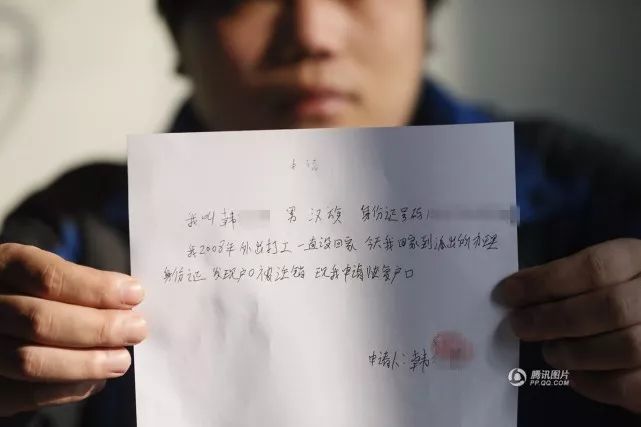 我叫韩 男 汉族 身份证号码
我2008年外出打工一直没回家 今天我回家到派出所办理
身份证 发现户口被注销 现我申请恢复户口
申请人:韩
腾讯图片
PP.QQ.COM